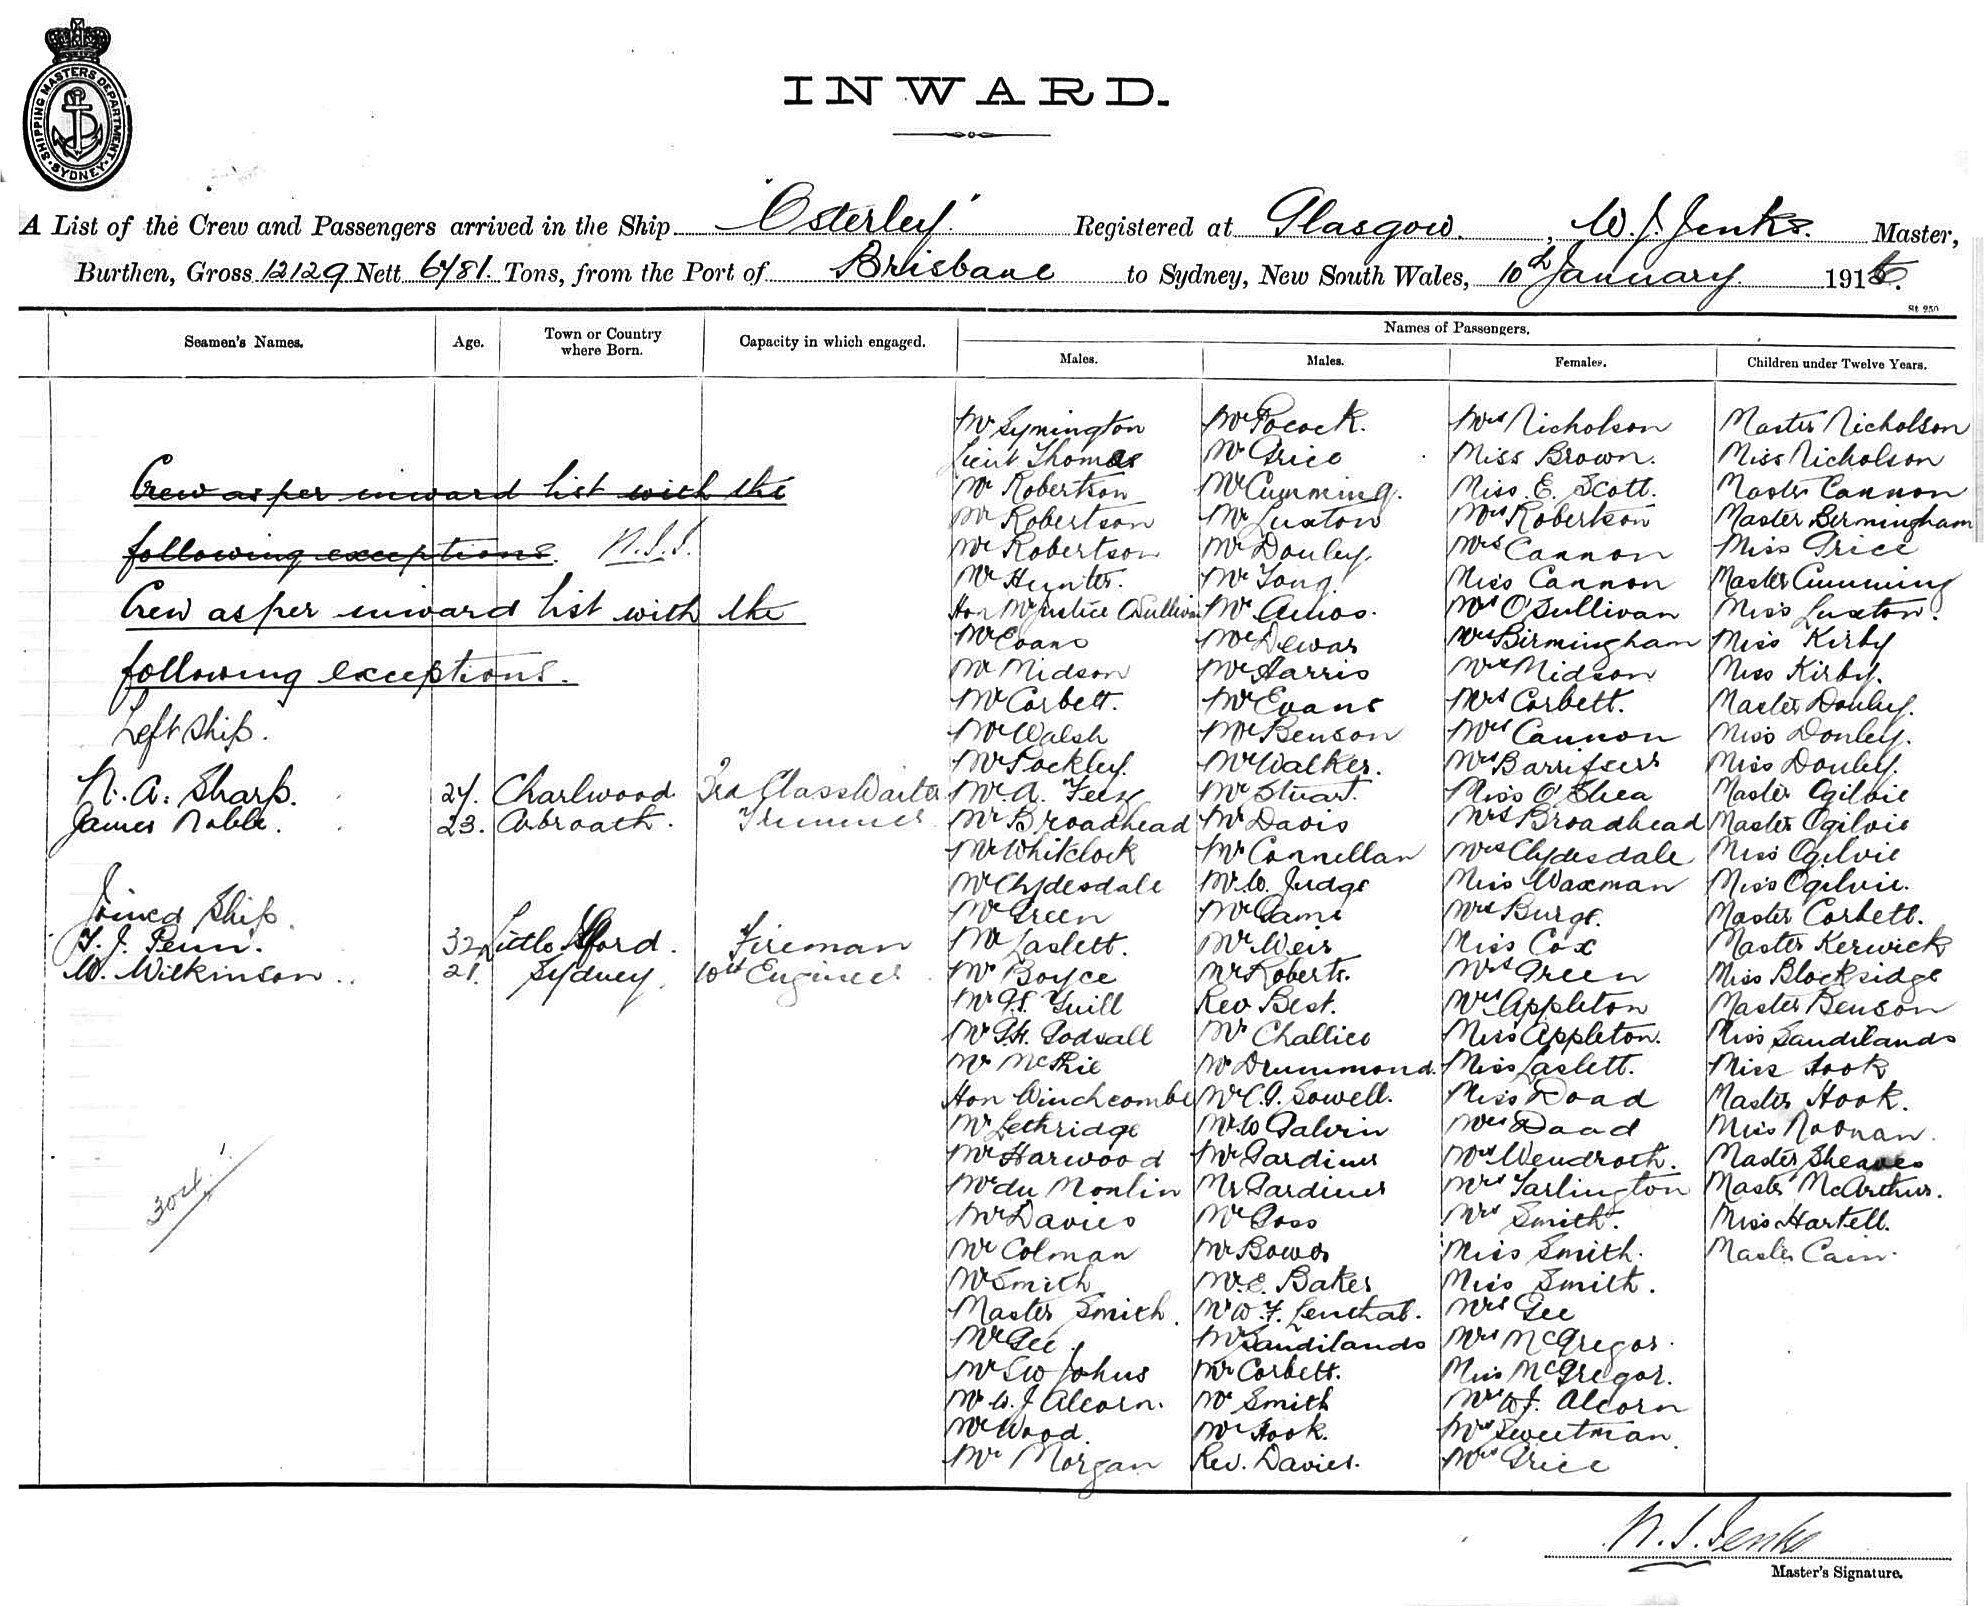 SHIPPING MASTERS DEPARTMENT
SYDNEY
INWARD.
A List of the Crew and Passengers arrived in the Ship "Osterley" Registered at Glasgow, W. J. Jenks. Master,
Burthen, Gross 12129 Nett 6781. Tons, from the Port of Brisbane to Sydney, New South Wales, 10th January 191
St 250
Names of Passengers.
Seamen's Names. Age. Town or Country where Born. Capacity in which engaged. Males. Males. Females. Children under Twelve Years.
Crew as per inward list with the
following exceptions.
Crew as per inward list with the
following exceptions.
Left Ship.
N. A. Sharp. 24. Charlwood 3rd Class Waiter
James Noble. 23. Arbroath. Trimmer
Joined Ship.
T. J. Penn. 32 Little Ilford. Fireman
W. Wilkinson 21. Sydney. 10th Engineer
304
Mr Symington
Lieut Thomas
Mr Robertson
Mr Robertson
Mr Robertson
Mr Hunter.
Hon Mr Justice O'Sullivan
Mr Evans
Mr Midson
Mr Corbett.
Mr Walsh
Mr Pockley.
Mr A.
Mr Broadhead
Mr Whitelock
Mr Clydesdale
Mr Green
Mr Laslett.
Mr Boyce
Mr Guill
Mr Godsall
Mr McPhie
Hon Winchcombe
Mr Lethridge
Mr Harwood
Mr du Moulin
Mr Davies
Mr Colman
Mr Smith
Master Smith.
Mr Gee.
Mr Johns
Mr W. J Alcorn.
Mr Wood.
Mr Morgan
Mr Pocock.
Mr Price
Mr Cumming.
Mr Luxton
Mr Donley.
Mr Tong
Mr Amos.
Mr Dewar
Mr Harris
Mr Evans
Mr Benson
Mr Walker.
Mr Stuart.
Mr Davis
Mr Connellan
Mr W. Judge
Mr
Mr Weir
Mr Roberts.
Rev Best.
Mr Challice
Mr Drummond.
Mr C. G. Sowell.
Mr W Galvin
Mr Gardiner
Mr Gardiner
Mr Goss
Mr Bower
Mr E. Baker
Mr W. F. Lenthal.
Mr Sandilands
Mr Corbett.
Mr Smith
Mr Hook.
Rev. Davies.
Mrs Nicholson
Miss Brown.
Miss E. Scott.
Mrs Robertson
Mrs Cannon
Miss Cannon
Mrs O'Sullivan
Mrs Birmingham
Mrs Midson
Mrs Corbett.
Mrs Cannon
Mrs
Miss O'Shea
Mrs Broadhead
Mrs Clydesdale
Miss Waxman
Mrs Burge.
Miss Cox
Mrs Green
Mrs Appleton
Miss Appleton.
Miss Laslett.
Miss Doad
Mrs Doad
Mrs Wendroth.
Mrs Tarlington
Mrs Smith.
Miss Smith.
Miss Smith.
Mrs Gee
Mrs McGregor.
Miss McGregor.
Mrs W. J. Alcorn
Mrs Sweetman.
Mrs Price
Master Nicholson
Miss Nicholson
Master Cannon
Master Bermingham
Miss Price
Master Cumming
Miss Luxton.
Miss Kirby
Miss Kirby.
Master Donley.
Miss Donley.
Miss Donley.
Master Ogilvie
Master Ogilvie
Miss Ogilvie
Miss Ogilvie.
Master Corbett.
Master Kerwick
Miss Blocksidge
Master Benson
Miss Sandilands
Miss Hook
Master Hook.
Miss Noonan.
Master Sheaves
Master McArthur.
Miss Hartell.
Master Cain.
W. J. Jenks
Master's Signature.